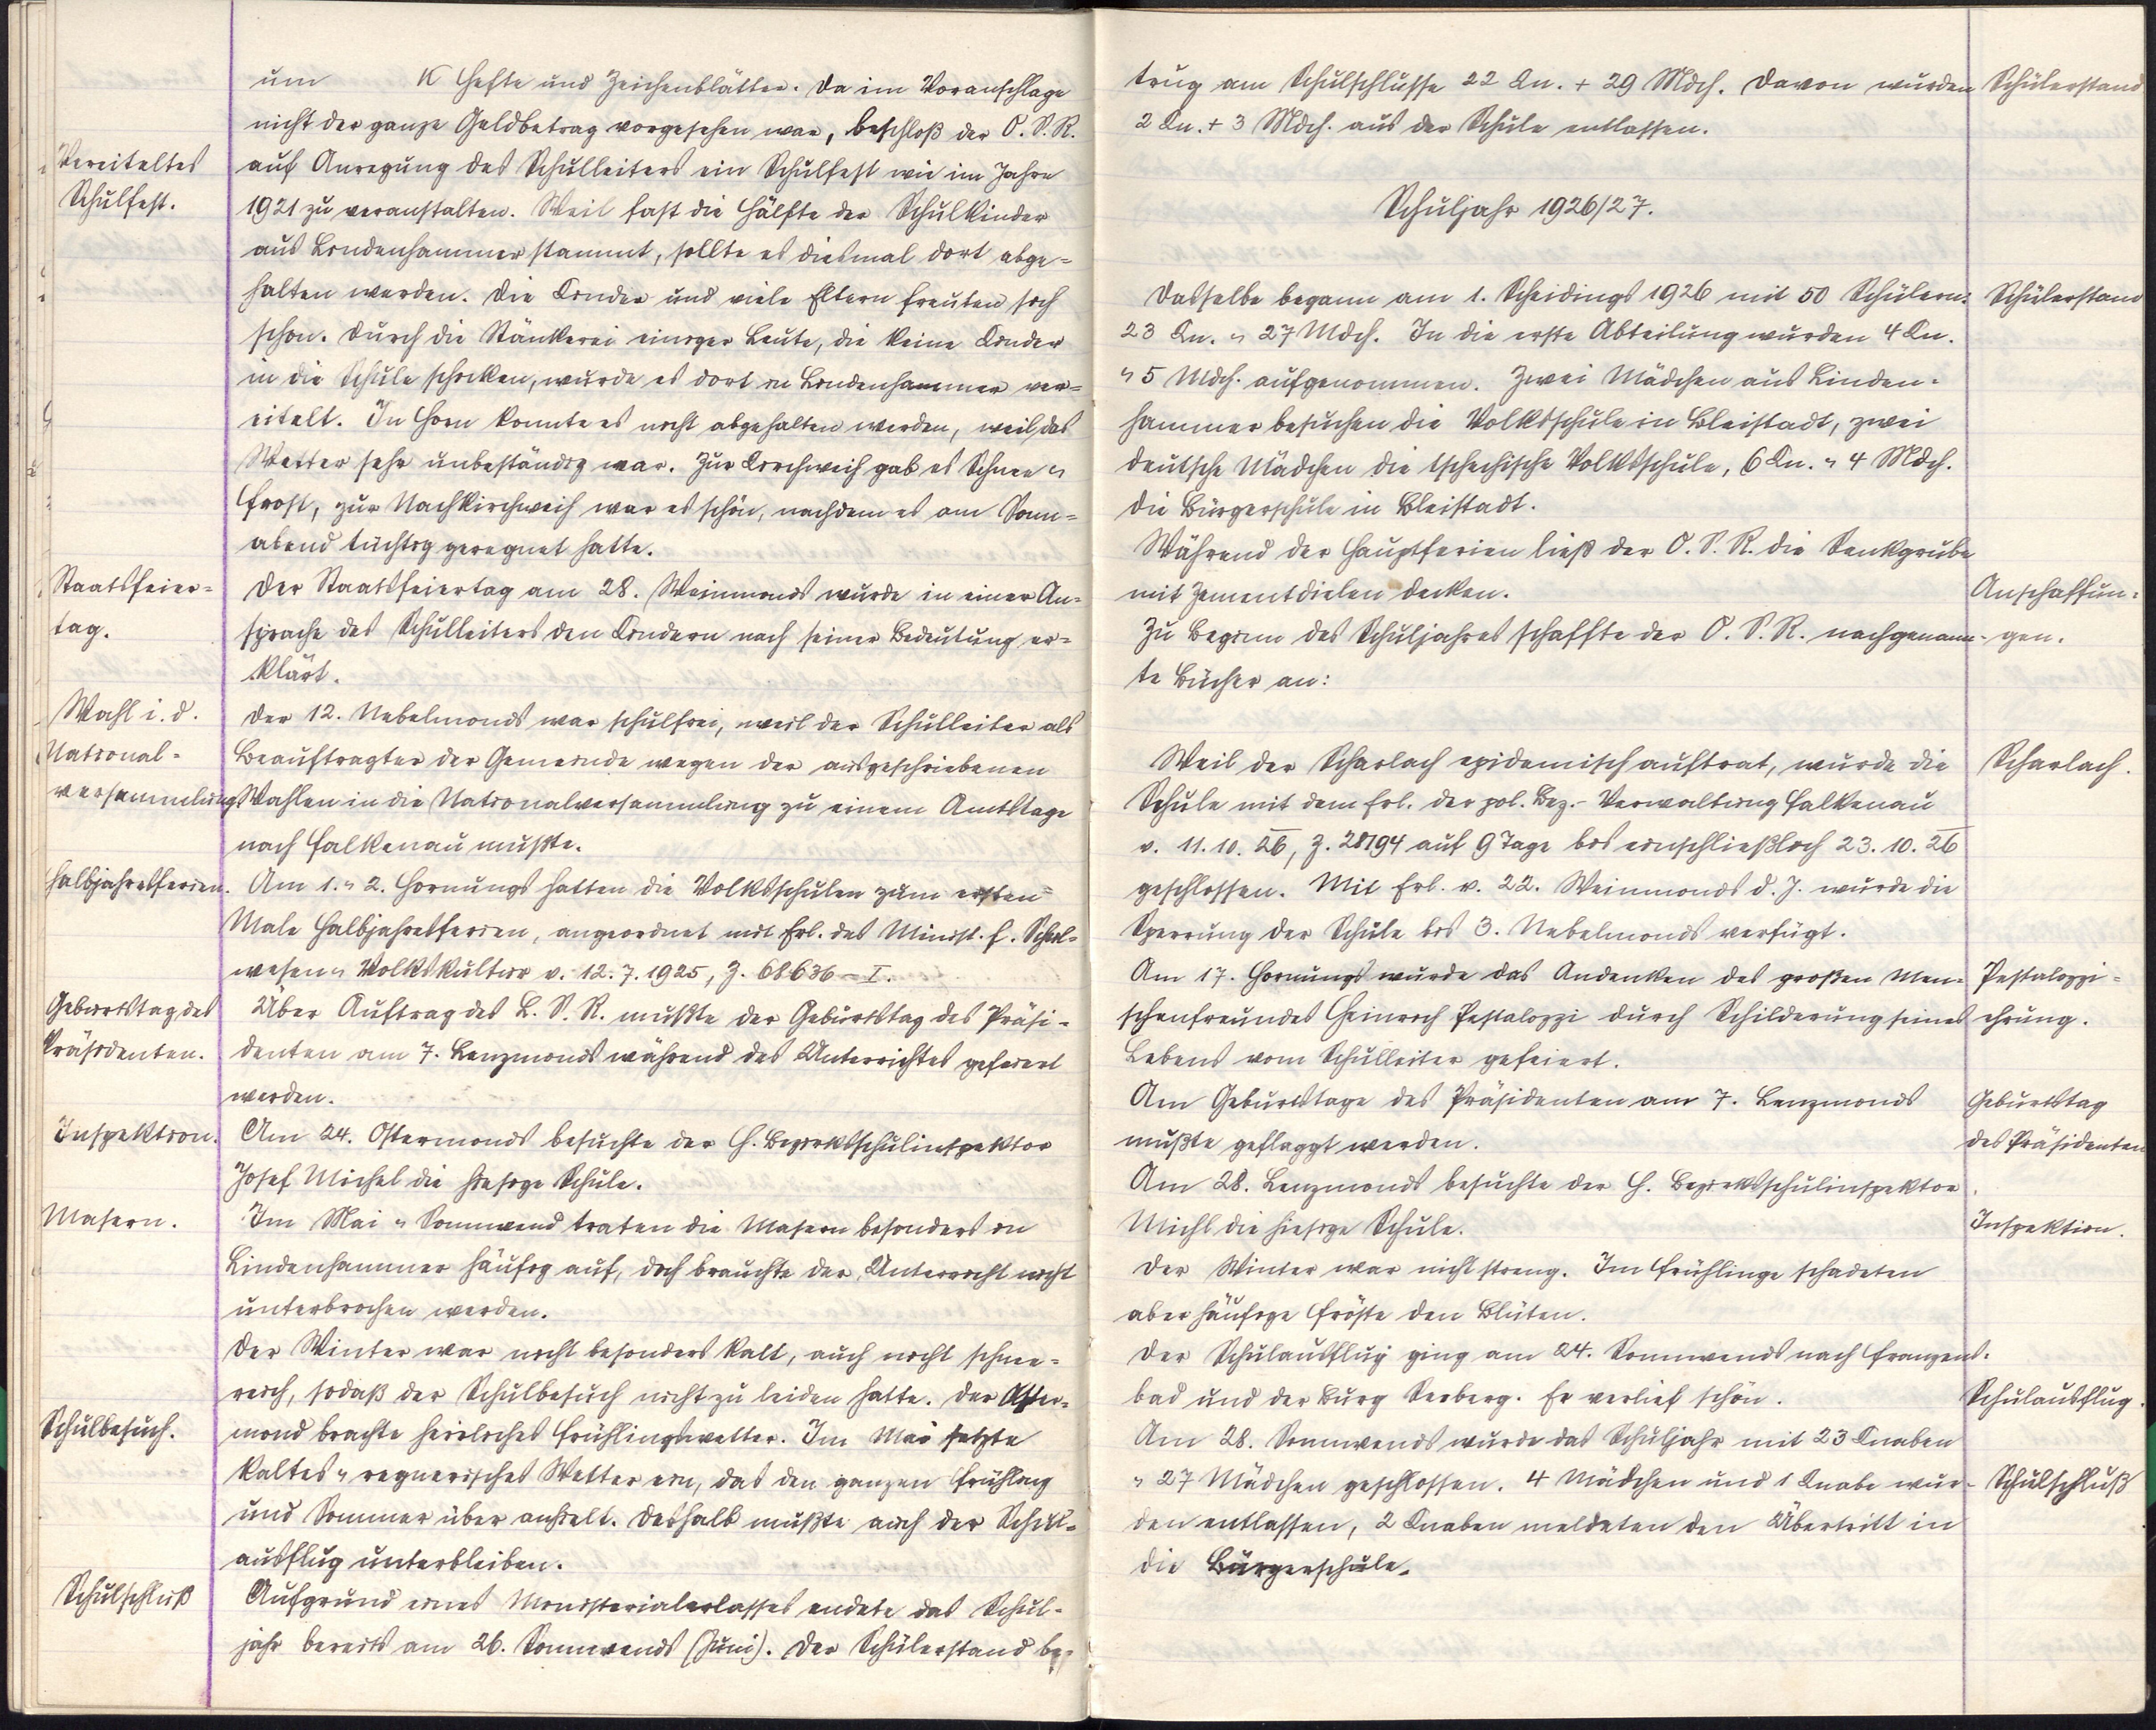 um K Hefte und Zeichenblätter. Da im Voranschlage
nicht der ganze Geldbetrag vorgesehen war, beschloß der O. S. R.
Vereiteltes
auf Anregung des Schulleiters ein Schulfest wie im Jahre
Schulfest.
1921 zu veranstalten. Weil fast die Hälfte der Schulkinder
aus Lindenhammer stammt, sollte es diesmal dort abge-
halten werden. Die Kinder und viele Eltern freuten sich
schon. Durch die Stänkerei einiger Leute, die keine Kinder
in die Schule schicken, wurde es dort in Lindenhammer ver-
eitelt. In Horn konnte es nicht abgehalten werden, weil das
Wetter sehr unbeständig war. Zur Kirchweih gab es Schnee u
Frost, zur Nachkirchweih war es schön, nachdem es am Sonn-
abend tüchtig geregnet hatte.
Staatsfeier-
Der Staatsfeiertag am 28. Weinmonds wurde in einer An-
tag.
sprache des Schulleiters den Kindern nach seiner Bedeutung er-
klärt.
Wahl i. d.
Der 12. Nebelmonds war schulfrei, weil der Schulleiter als
National-
Beauftragter der Gemeinde wegen der ausgeschriebenen
versammlung
Wahlen in die Nationalversammlung zu einem Amtstage
nach Falkenau mußte.
Halbjahrsferien.
Am 1. u 2. Hornungs hatten die Volksschulen zum ersten
Male Halbjahrsferien, angeordnet mit Erl. des Minist. f. Schul-
wesen u Volkskultur v. 12. 7. 1925, Z. 68636 – I.
Geburtstag des
Über Auftrag des L. S. R. mußte der Geburtstag des Präsi-
Präsidenten.
denten am 7. Lenzmonds während des Unterrichtes gefeiert
werden.
Inspektion.
Am 24. Ostermonds besuchte der H. Bezirksschulinspektor
Josef Michel die hiesige Schule.
Masern.
Im Mai u Sonnwend traten die Masern besonders in
Lindenhammer häufig auf, doch brauchte der Unterricht nicht
unterbrochen werden.
Der Winter war nicht besonders kalt, auch nicht schnee-
reich, sodaß der Schulbesuch nicht zu leiden hatte. Der Oster-
Schulbesuch.
mond brachte herrliches Frühlingswetter. Im Mai setzte
kaltes u regnerisches Wetter ein, das den ganzen Frühling
und Sommer über anhielt. Deshalb mußte auch der Schul-
ausflug unterbleiben.
Schulschluß
Aufgrund eines Ministerialerlasses endete das Schul-
jahr bereits am 26. Sonnwends (Juni). Der Schülerstand be-
trug am Schulschlusse 22 Kn. + 29 Mdch. Davon wurden
Schülerstand
2 Kn. + 3 Mdch. aus der Schule entlassen.
Schuljahr 1926/27.
Dasselbe begann am 1. Scheidings 1926 mit 50 Schülern:
Schülerstand
23 Kn. u 27 Mdch. In die erste Abteilung wurden 4 Kn.
u 5 Mdch. aufgenommen. Zwei Mädchen aus Linden-
hammer besuchen die Volksschule in Bleistadt, zwei
deutsche Mädchen die tschechische Volksschule, 6 Kn. u 4 Mdch.
die Bürgerschule in Bleistadt.
Während der Hauptferien ließ der O. S. R. die Senkgrube
mit Zementdielen decken.
Anschaffun-
Zu Beginn des Schuljahres schaffte der O. S. R. nachgenann-
gen.
te Bücher an:
Weil der Scharlach epidemisch auftrat, wurde die
Scharlach.
Schule mit dem Erl. der pol. Bez.-Verwaltung Falkenau
v. 11. 10. 26, Z. 28194 auf 9 Tage bis einschließlich 23. 10. 26
geschlossen. Mit Erl. v. 22. Weinmonds d. J. wurde die
Sperrung der Schule bis 3. Nebelmonds verfügt.
Am 17. Hornungs wurde das Andenken des großen Men-
Pestalozzi-
schenfreundes Heinrich Pestalozzi durch Schilderung seines
ehrung.
Lebens vom Schulleiter gefeiert.
Am Geburtstage des Präsidenten am 7. Lenzmonds
Geburtstag
mußte geflaggt werden.
des Präsidenten
Am 28. Lenzmonds besuchte der H. Bezirksschulinspektor
Michl die hiesige Schule.
Inspektion.
Der Winter war nicht streng. Im Frühlinge schadeten
aber häufige Fröste den Blüten.
Der Schulausflug ging am 24. Sonnwends nach Franzens-
bad und der Burg Seeberg. Er verlief schön.
Schulausflug.
Am 28. Sonnwends wurde das Schuljahr mit 23 Knaben
u 27 Mädchen geschlossen. 4 Mädchen und 1 Knabe wur-
Schulschluß
den entlassen, 2 Knaben meldeten den Übertritt in
die Bürgerschule.